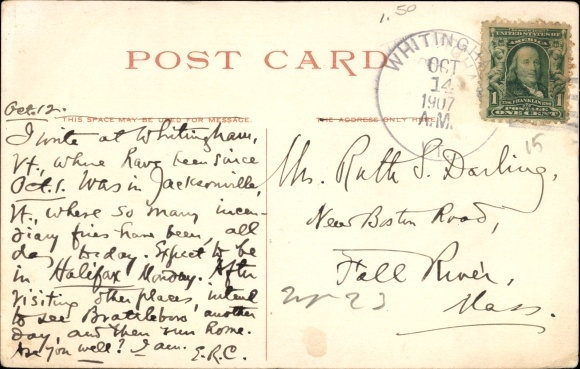 1.50
POST CARD
WHITINGH
OCT
14
1907
A.M.
UNITED STATES OF AMERICA
1 FRANKLIN 1
POSTAGE
ONE CENT
15
Oct. 12.
THIS SPACE MAY BE USED FOR MESSAGE.
THE ADDRESS ONLY HERE
I write at Whitingham,
Vt., where have been since
Oct. 1. Was in Jacksonville,
Vt., where so many incen-
diary fires have been, all
day to day. Expect to be
in Halifax Monday. After
visiting other places, intend
to see Brattleboro' another
day, and then run home.
Are you well? I am. E.R.C.
Ruth S. Darling,
New Boston Road,
Fall River,
Mass.
23